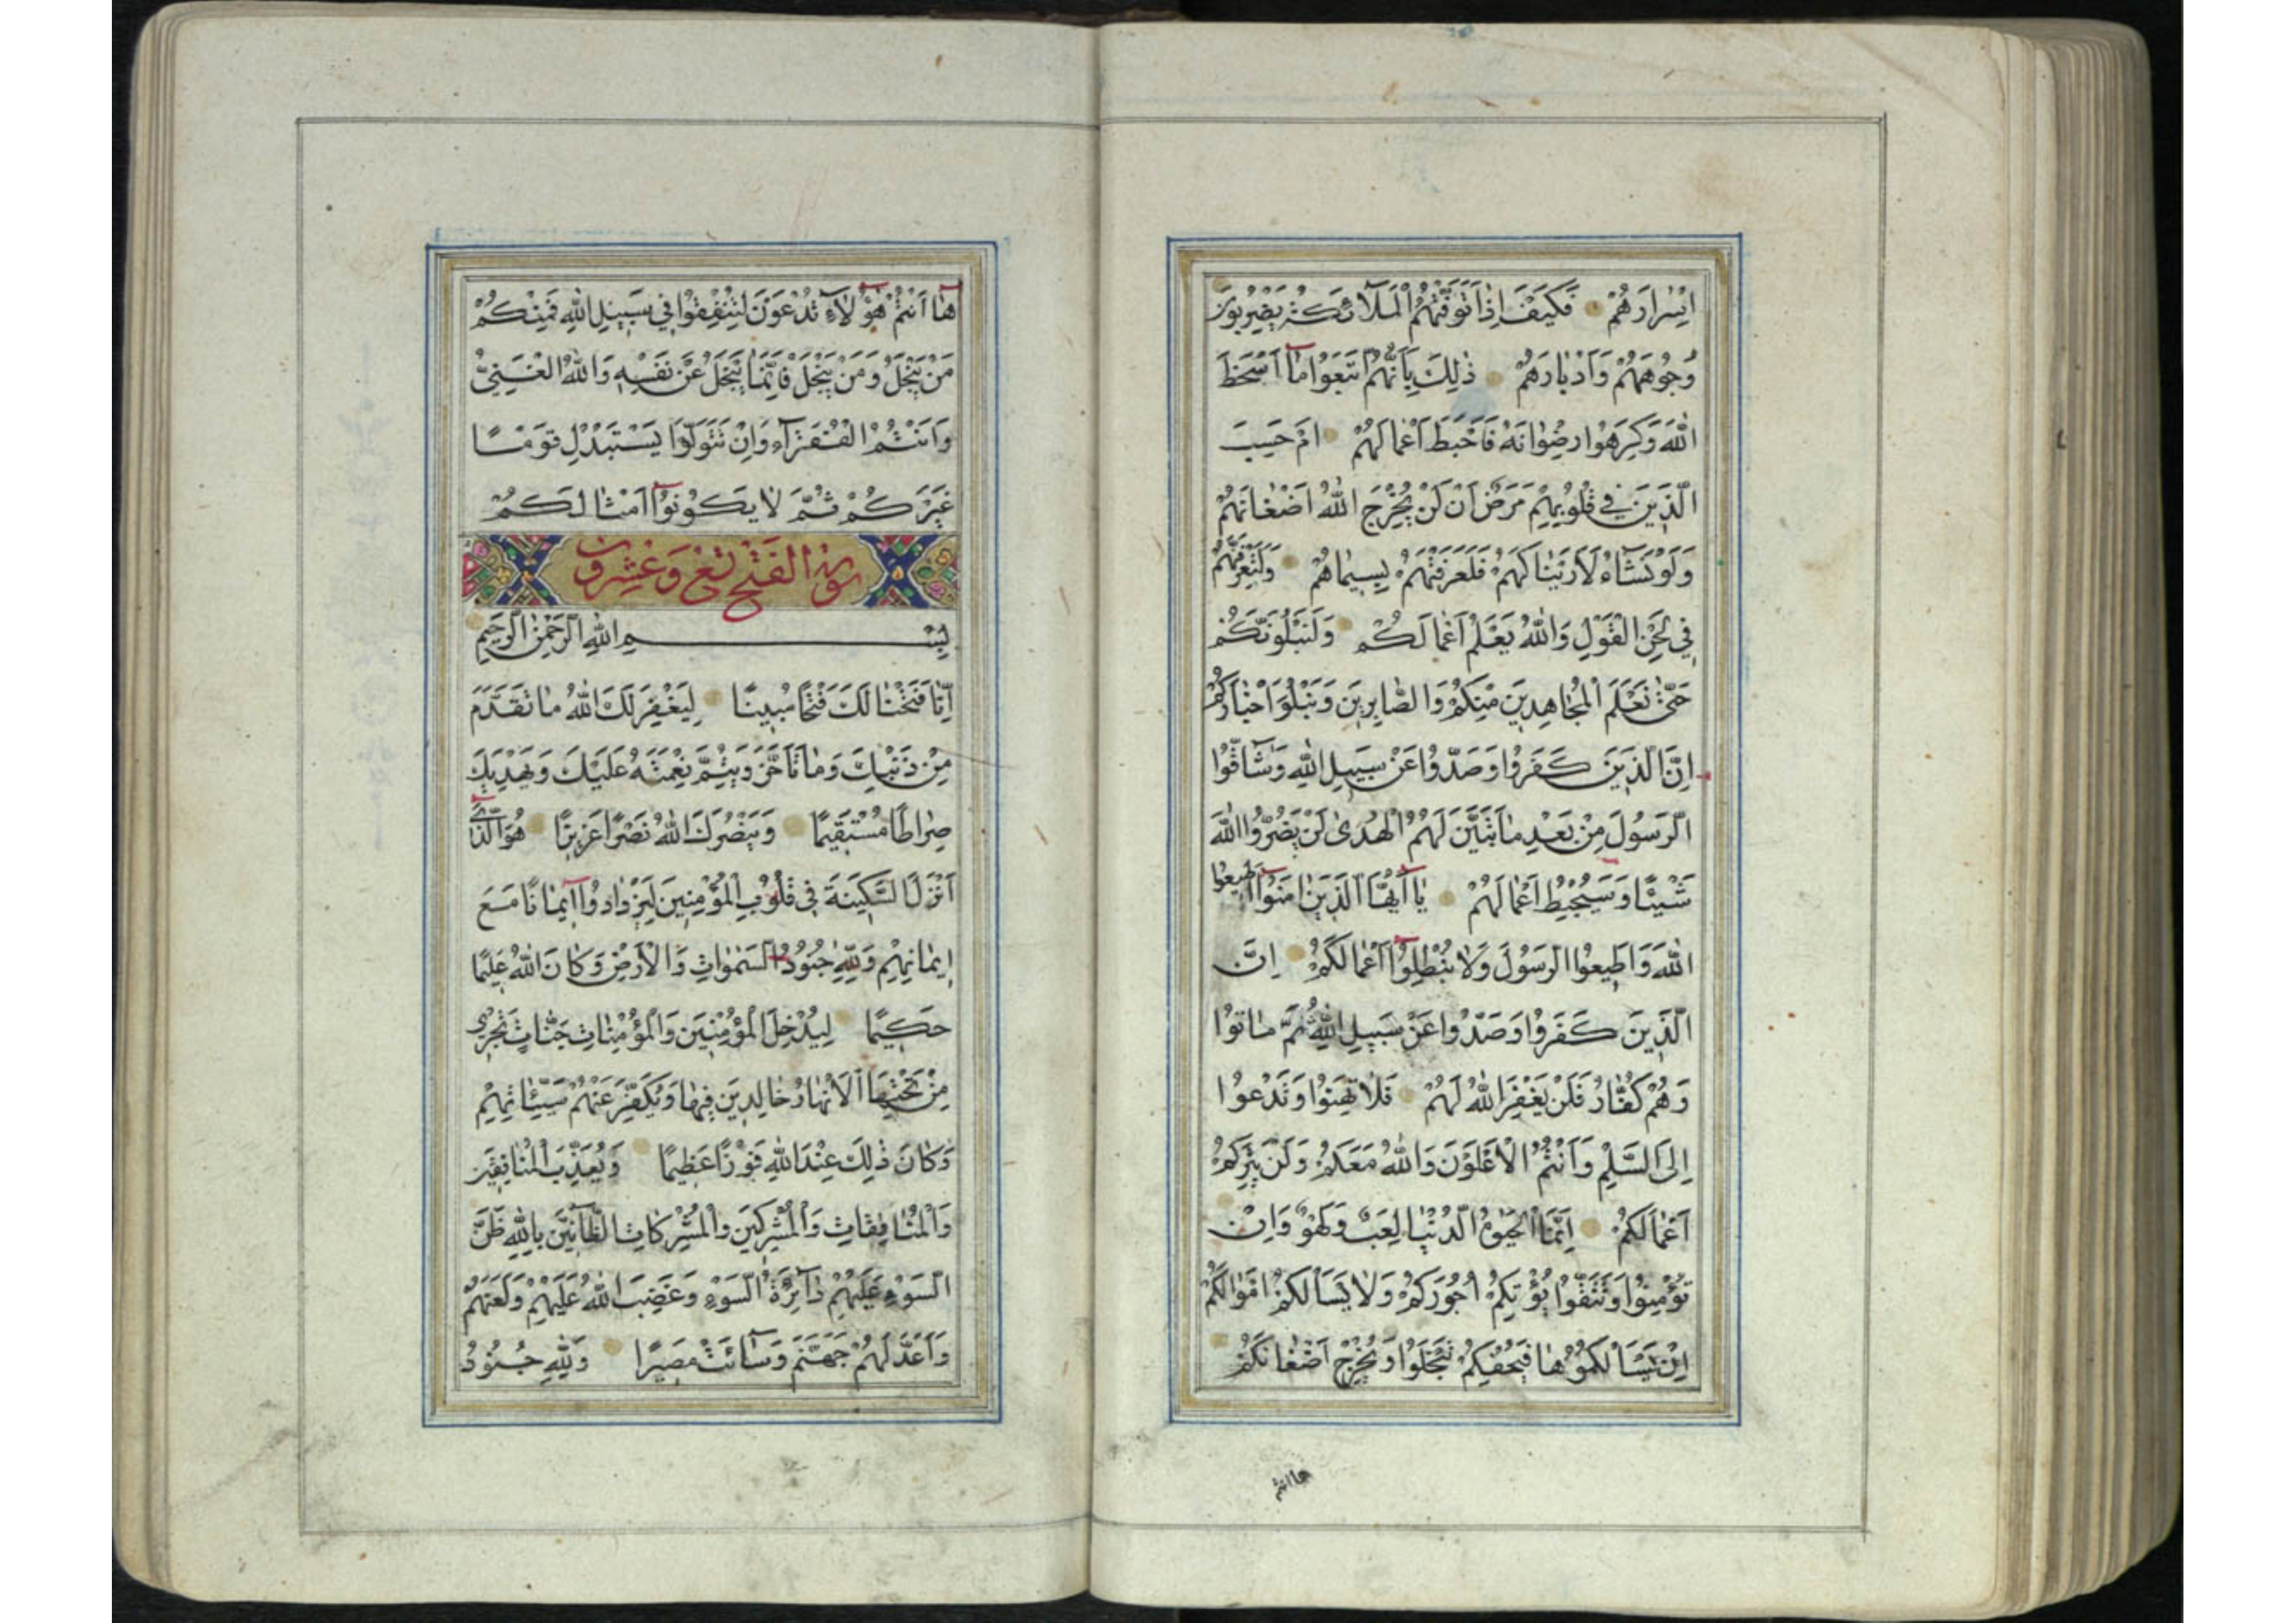 اِسْرَارَهُمْ فَكَيْفَ اِذَا تَوَفَّتْهُمُ الْمَلَآئِكَةُ يَضْرِبُونَ
وُجُوهَهُمْ وَاَدْبَارَهُمْ ذٰلِكَ بِاَنَّهُمُ اتَّبَعُوا مَآ اَسْخَطَ
اللّٰهَ وَكَرِهُوا رِضْوَانَهُ فَاَحْبَطَ اَعْمَالَهُمْ اَمْ حَسِبَ
الَّذِينَ فِي قُلُوبِهِمْ مَرَضٌ اَنْ لَنْ يُخْرِجَ اللّٰهُ اَضْغَانَهُمْ
وَلَوْ نَشَآءُ لَاَرَيْنَاكَهُمْ فَلَعَرَفْتَهُمْ بِسِيمَاهُمْ وَلَتَعْرِفَنَّهُمْ
فِي لَحْنِ الْقَوْلِ وَاللّٰهُ يَعْلَمُ اَعْمَالَكُمْ وَلَنَبْلُوَنَّكُمْ
حَتّٰى نَعْلَمَ الْمُجَاهِدِينَ مِنْكُمْ وَالصَّابِرِينَ وَنَبْلُوَ اَخْبَارَكُمْ
اِنَّ الَّذِينَ كَفَرُوا وَصَدُّوا عَنْ سَبِيلِ اللّٰهِ وَشَآقُّوا
الرَّسُولَ مِنْ بَعْدِ مَا تَبَيَّنَ لَهُمُ الْهُدٰى لَنْ يَضُرُّوا اللّٰهَ
شَيْئًا وَسَيُحْبِطُ اَعْمَالَهُمْ يَآ اَيُّهَا الَّذِينَ اٰمَنُوآ اَطِيعُوا
اللّٰهَ وَاَطِيعُوا الرَّسُولَ وَلَا تُبْطِلُوآ اَعْمَالَكُمْ اِنَّ
الَّذِينَ كَفَرُوا وَصَدُّوا عَنْ سَبِيلِ اللّٰهِ ثُمَّ مَاتُوا
وَهُمْ كُفَّارٌ فَلَنْ يَغْفِرَ اللّٰهُ لَهُمْ فَلَا تَهِنُوا وَتَدْعُوا
اِلَى السَّلْمِ وَاَنْتُمُ الْاَعْلَوْنَ وَاللّٰهُ مَعَكُمْ وَلَنْ يَتِرَكُمْ
اَعْمَالَكُمْ اِنَّمَا الْحَيٰوةُ الدُّنْيَا لَعِبٌ وَلَهْوٌ وَاِنْ
تُؤْمِنُوا وَتَتَّقُوا يُؤْتِكُمْ اُجُورَكُمْ وَلَا يَسْاَلْكُمْ اَمْوَالَكُمْ
اِنْ يَسْاَلْكُمُوهَا فَيُحْفِكُمْ تَبْخَلُوا وَيُخْرِجْ اَضْغَانَكُمْ
ها انتم
هَآ اَنْتُمْ هٰٓؤُلَآءِ تُدْعَوْنَ لِتُنْفِقُوا فِي سَبِيلِ اللّٰهِ فَمِنْكُمْ
مَنْ يَبْخَلُ وَمَنْ يَبْخَلْ فَاِنَّمَا يَبْخَلُ عَنْ نَفْسِهِ وَاللّٰهُ الْغَنِيُّ
وَاَنْتُمُ الْفُقَرَآءُ وَاِنْ تَتَوَلَّوْا يَسْتَبْدِلْ قَوْمًا
غَيْرَكُمْ ثُمَّ لَا يَكُونُوآ اَمْثَالَكُمْ
سورة الفتح تسع وعشرون
بِسْمِ اللّٰهِ الرَّحْمٰنِ الرَّحِيمِ
اِنَّا فَتَحْنَا لَكَ فَتْحًا مُبِينًا لِيَغْفِرَ لَكَ اللّٰهُ مَا تَقَدَّمَ
مِنْ ذَنْبِكَ وَمَا تَاَخَّرَ وَيُتِمَّ نِعْمَتَهُ عَلَيْكَ وَيَهْدِيَكَ
صِرَاطًا مُسْتَقِيمًا وَيَنْصُرَكَ اللّٰهُ نَصْرًا عَزِيزًا هُوَ الَّذِي
اَنْزَلَ السَّكِينَةَ فِي قُلُوبِ الْمُؤْمِنِينَ لِيَزْدَادُوآ اِيمَانًا مَعَ
اِيمَانِهِمْ وَلِلّٰهِ جُنُودُ السَّمٰوَاتِ وَالْاَرْضِ وَكَانَ اللّٰهُ عَلِيمًا
حَكِيمًا لِيُدْخِلَ الْمُؤْمِنِينَ وَالْمُؤْمِنَاتِ جَنَّاتٍ تَجْرِي
مِنْ تَحْتِهَا الْاَنْهَارُ خَالِدِينَ فِيهَا وَيُكَفِّرَ عَنْهُمْ سَيِّئَاتِهِمْ
وَكَانَ ذٰلِكَ عِنْدَ اللّٰهِ فَوْزًا عَظِيمًا وَيُعَذِّبَ الْمُنَافِقِينَ
وَالْمُنَافِقَاتِ وَالْمُشْرِكِينَ وَالْمُشْرِكَاتِ الظَّآنِّينَ بِاللّٰهِ ظَنَّ
السَّوْءِ عَلَيْهِمْ دَآئِرَةُ السَّوْءِ وَغَضِبَ اللّٰهُ عَلَيْهِمْ وَلَعَنَهُمْ
وَاَعَدَّ لَهُمْ جَهَنَّمَ وَسَآئَتْ مَصِيرًا وَلِلّٰهِ جُنُودُ